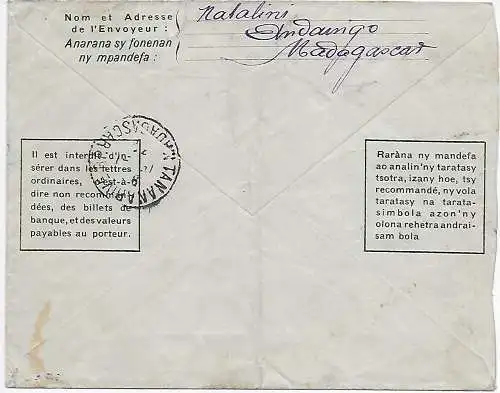 Nom et Adresse
de l'Envoyeur :
Anarana sy fonenan
ny mpandefa :
Natalini
Madagascar
TANANARIVE
MADAGASCAR
Il est interdit d'in-
sérer dans les lettres
ordinaires, c'est-à-
dire non recomman-
dées, des billets de
banque, et des valeurs
payables au porteur.
Raràna ny mandefa
ao analin'ny taratasy
tsotra, izany hoe, tsy
recommandé, ny vola
taratasy na tarata-
simbola azon'ny
olona rehetra andrai-
sam bola